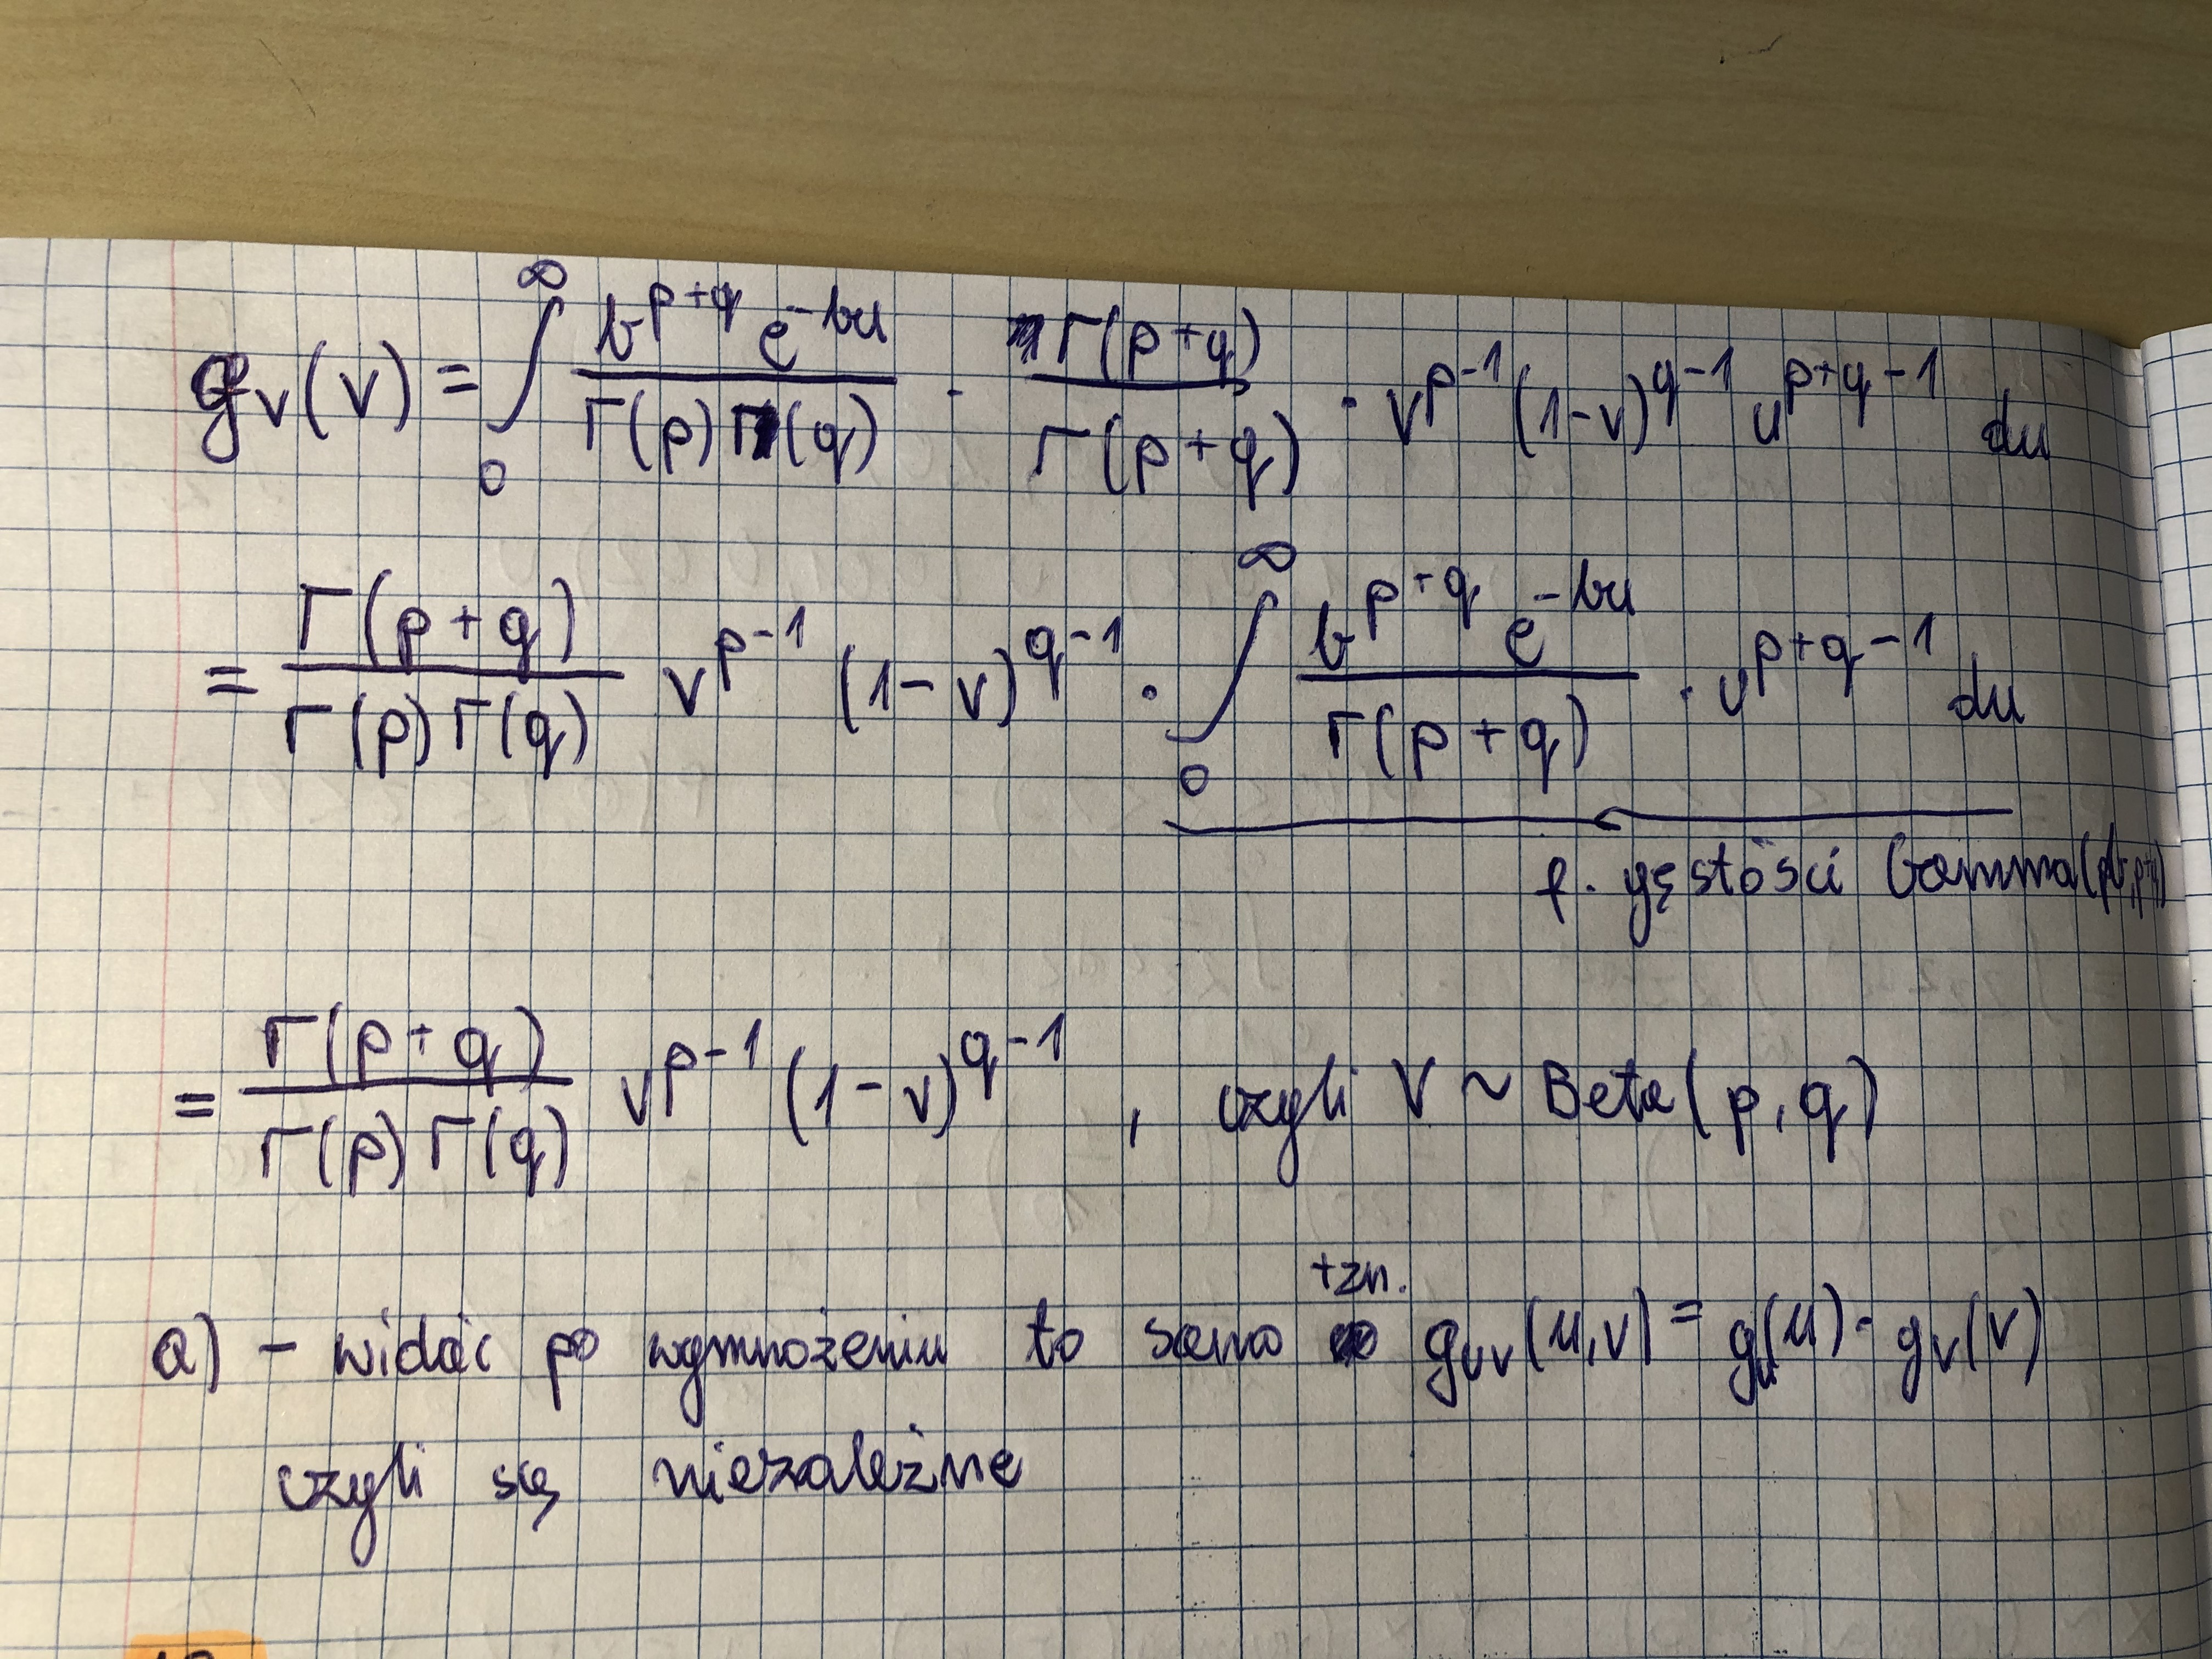 g_V(v) = ∫_0^∞ \frac{b^{p+q} e^{-bu}}{Γ(p)Γ(q)} · \frac{Γ(p+q)}{Γ(p+q)} · v^{p-1} (1-v)^{q-1} u^{p+q-1} du
= \frac{Γ(p+q)}{Γ(p)Γ(q)} v^{p-1} (1-v)^{q-1} · ∫_0^∞ \frac{b^{p+q} e^{-bu}}{Γ(p+q)} · u^{p+q-1} du
f. gęstości Gamma(b, p+q)
= \frac{Γ(p+q)}{Γ(p)Γ(q)} v^{p-1} (1-v)^{q-1} , czyli V ~ Beta(p, q)
a) - widać po wymnożeniu to samo tzn. g_{UV}(u,v) = g_U(u) · g_V(v)
czyli są niezależne